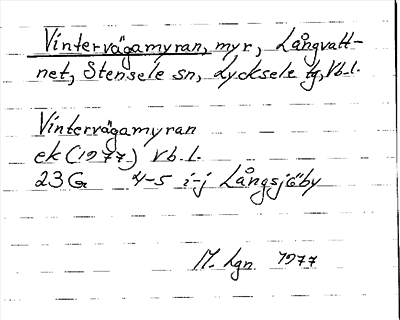 Vintervägamyran, myr, Långvatt-
net, Stensele sn, Lycksele tg, Vb.l.
Vintervägamyran
ek (1977) Vb.l.
23 G 4-5 i-j Långsjöby
M. Lgn 1977